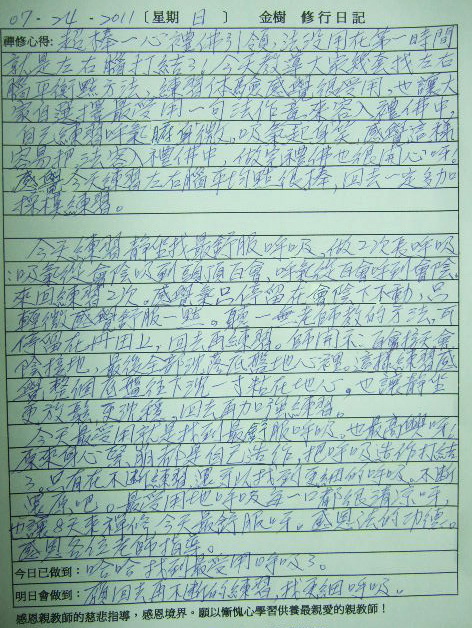 07-24-2011〔星期 日 〕 金樹 修行日記
禪修心得: 超棒一心禮佛引領,法没用在第一時間
就是左右腦打結了!今天教導大家幾套找左右
腦平衡點方法,練習休息感覺很受用。也讓大
家自選擇最受用一句法作意來容入禮佛中,
自己練習呼氣臍身微,吸氣起身笑,感覺這樣
容易把法容入禮佛中,做完禮佛也很開心呼。
感覺今天練習左右腦平均點很棒,回去一定多加
練習。
今天練習靜坐找最舒服呼吸。做2次長呼吸
:吸氣從會陰吸到頭頂百會,呼氣從百會呼到會陰,
來回練習2次。感覺氣只停留在會陰下不動,只
輕微感覺舒服一點。聽一無老師教的方法,可
停留在丹田上,回去再練習。師開示:百會接天會
陰接地,最後全部沈落底盤地心裡。這樣練習感
覺整個底盤往下沈一寸粘在地心。也讓靜坐
更放鬆更沈穩,回去再加強練習。
今天最受用就是找到最舒服呼吸。也最高興呼!
原來身心緊繃都是自己造作,把呼吸造作打結
了。只有在不斷練習還可以找到更細的呼吸。不斷
還原吧。最受用地呼吸每一口都很清涼呼,
也讓8天來禪修,今天最舒服呼。感恩法的功德。
感恩各位老師指導。
今日已做到: 哈哈找到最受用呼吸了。
明日會做到: 確回去再不斷的練習,找更細呼吸。
感恩親教師的慈悲指導,感恩境界。願以慚愧心學習供養最親愛的親教師!